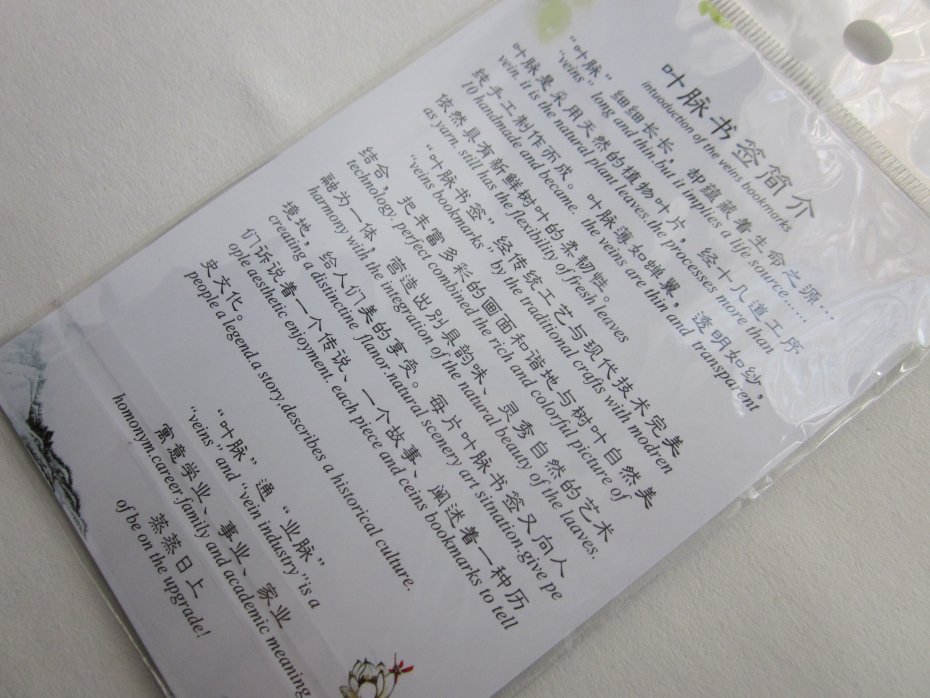 叶脉书签简介
intuoduction of the veins bookmarks
“叶脉”细细长长，却蕴藏着生命之源…
“veins” long and thin.but it implies a life source……
叶脉是采用天然的植物叶片，经十几道工序
vein. it is the natural plant leaves.the processes more than
纯手工制作而成。叶脉薄如蝉翼，透明如纱，
10 handmade and became. the veins are thin and transparent
依然具有新鲜树叶的柔韧性。
as yarn. still has the flexibility of fresh leaves
“叶脉书签”经传统工艺与现代技术完美
“veins bookmarks” by the traditional crafts with modren
结合，把丰富多彩的画面和谐地与树叶自然美
technology. perfect combined the rich and colorful picture of
融为一体，营造出别具韵味、灵秀自然的艺术
harmony with the integration of the natural beauty of the laaves.
境地，给人们美的享受。每片叶脉书签又向人
creating a distinctine flanor.natural scenery art sitnation.give pe
们诉说着一个传说、一个故事、阐述着一种历
ople aesthetic enjoyment. each piece and ceins bookmarks to tell
史文化。
people a legend.a story,describes a historical culture.
“叶脉”通“业脉”
“veins” and “vein industry”is a
寓意学业、事业、家业
homonym.career.family and academic meaning
蒸蒸日上
of be on the upgrade!